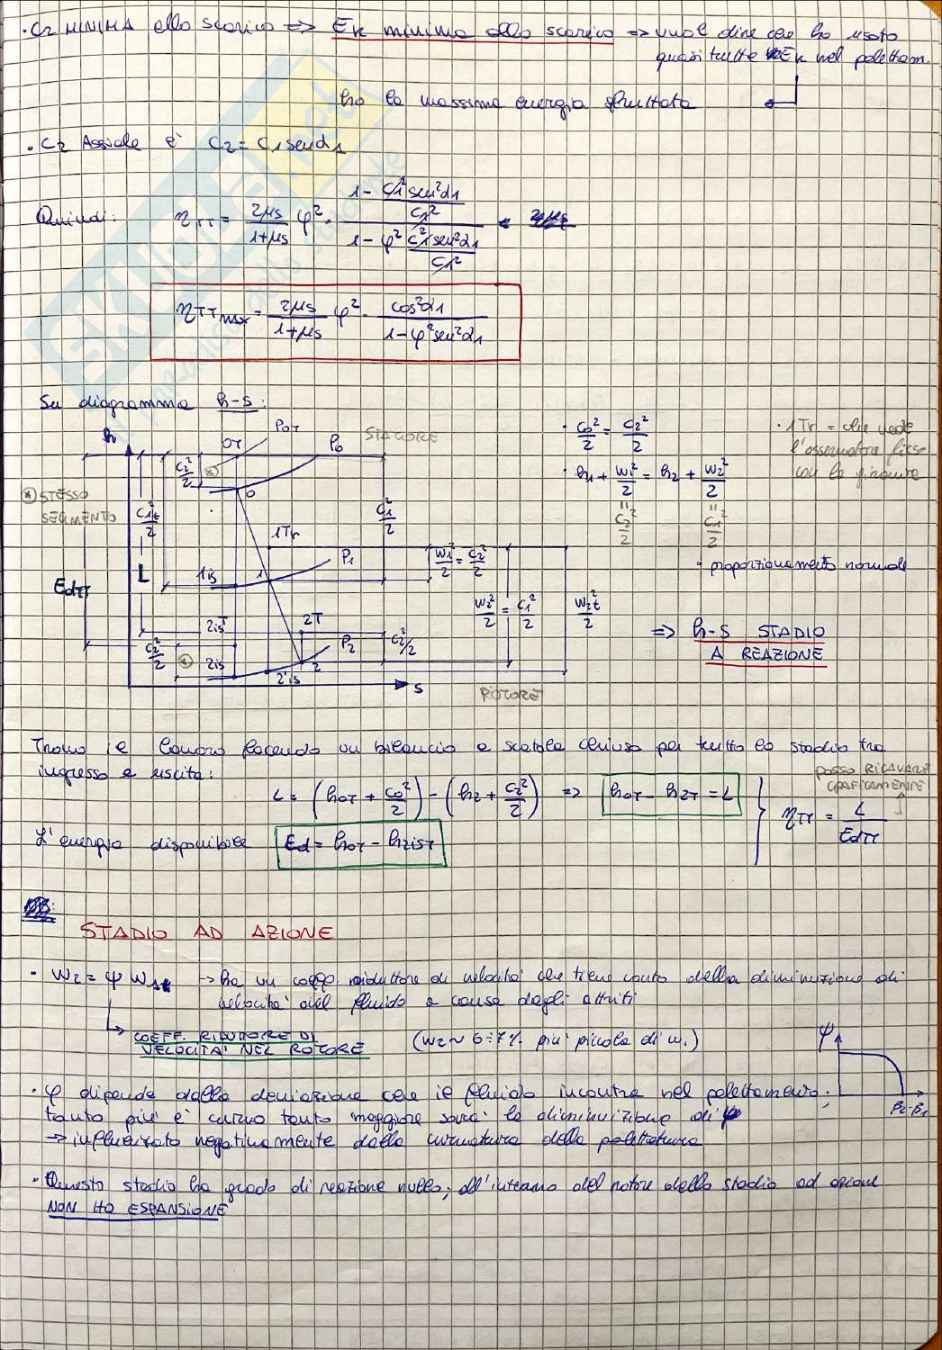 · C2 MINIMA allo scarico => Ek minima allo scarico => vuol dire che ho usato
quasi tutta Ek nel palettam.
ho la massima energia sfruttata
· C2 Assiale è C2 = C1 senα1
Quindi: ηTT = 2μs/(1+μs) φ² · (1 - C1² sen²α1/C1²)/(1 - φ² C1² sen²α1/C1²) =
ηTTmax = 2μs/(1+μs) φ² · cos²α1/(1-φ² sen²α1)
Su diagramma h-s:
h
0T
P0T
P0
STATORE
C0²/2
* STESSO
SEGMENTO
C1t²/2
0
C1²/2
1Tr
P1
W1²/2 = C2²/2
1is
1
L
EdTT
2isT
2T
C2²/2
P2
W2²/2 = C1²/2
W2t²/2
C2²/2
2is
2'is
2
s
ROTORE
· C0²/2 = C2²/2
· h1 + W1²/2 = h2 + W2²/2
=
C2²/2
=
C1²/2
· 1Tr = che vede
l'osservatore fisso
con la girante
· proporzionamento normale
=> h-s STADIO
A REAZIONE
Trovo il lavoro facendo un bilancio a scatola chiusa per tutto lo stadio tra
ingresso e uscita:
L = (h0T + C0²/2) - (h2 + C2²/2) => h0T - h2T = L
POSSO RICAVARE
GRAFICAMENTE
ηTT = L/EdTT
L'energia disponibile Ed = h0T - h2isT
STADIO AD AZIONE
· W2 = ψ W1 -> ha un coeff riduttore di velocità che tiene conto della diminuzione di
velocità del fluido a causa degli attriti
COEFF. RIDUTTORE DI
VELOCITA' NEL ROTORE
(W2 ~ 6÷7% più piccola di W1)
ψ
β2-β1
· ψ dipende dalla deviazione che il fluido incontra nel palettamento:
tanto più è curvo tanto maggiore sarà la diminuzione di ψ
=> influenzato negativamente dalla curvatura della palettatura
· Questo stadio ha grado di reazione nullo, all'interno del rotore dello stadio ad azione
NON HO ESPANSIONE